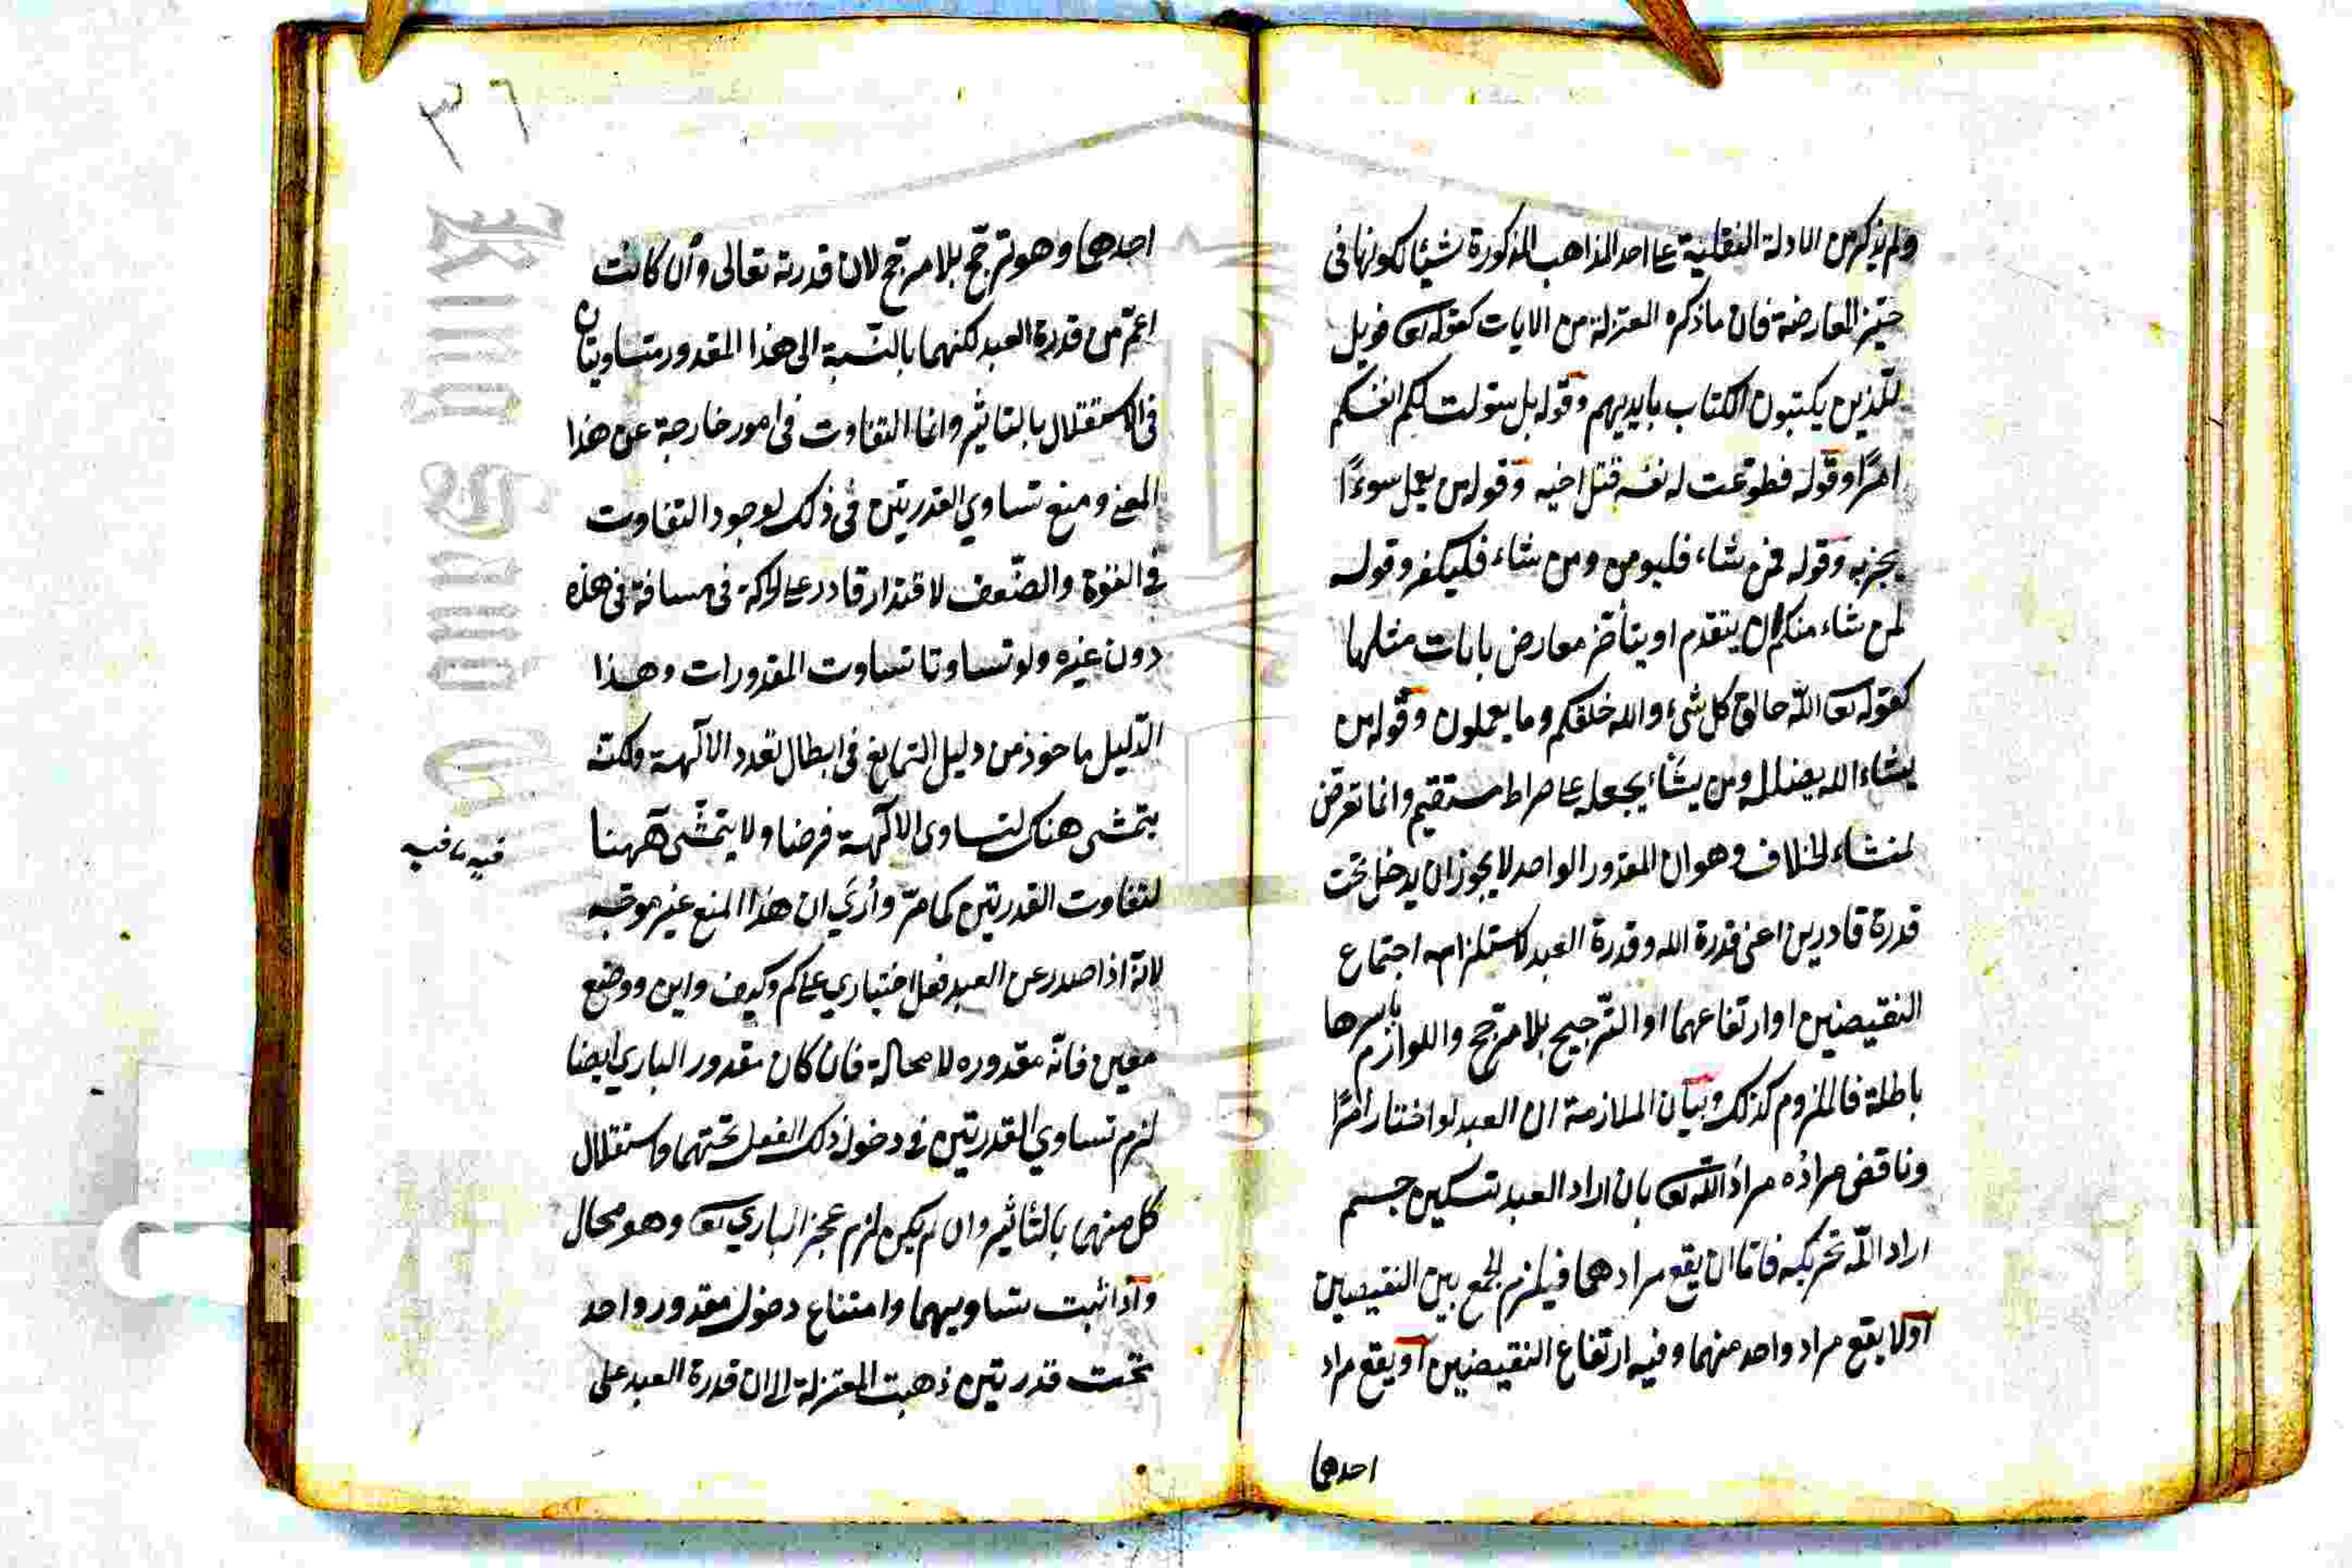 ولم يذكر من الادلة النقلية على احد المذاهب المذكورة شيئا لكونها في
حيّز المعارضة فان ما ذكره المعتزلة من الايات كقوله تعا فويل
للّذين يكتبون الكتاب بايديهم وقوله بل سولت لكم انفسكم
امرًا وقوله فطوعت له نفسه قتل اخيه وقوله من يعمل سوءًا
يجز به وقوله فمن شاء فليومن ومن شاء فليكفر وقوله
لمن شاء منكم ان يتقدم او يتأخر معارض بايات مثلها
كقوله تعا اللّه خالق كل شيء والله خلقكم وما يعملون وقوله من
يشاء الله يضلله ومن يشأ يجعله على صراط مستقيم وانما تعرض
لمنشاء الخلاف وهو ان المقدور الواحد لا يجوز ان يدخل تحت
قدرة قادرين اعنى قدرة الله وقدرة العبد لاستلزامه اجتماع
النقيضين او ارتفاعهما او الترجيح بلا مرجح واللوازم باسرها
باطلة فالملزوم كذلك وبيان الملازمة ان العبد لو اختار امرًا
وناقض مراده مراد اللّه تعا بان اراد العبد تسكين جسم
اراد اللّه تحريكه فامّا ان يقع مرادهما فيلزم الجمع بين النقيضين
اولا يقع مراد واحد منهما وفيه ارتفاع النقيضين او يقع مراد
احدهما
٣٦
احدهما وهو ترجّح بلا مرجّح لان قدرته تعالى وان كانت
اعمّ من قدرة العبد لكنهما بالنّسبة الى هذا المقدور متساويتان
في الاستقلال بالتاثير وانما التفاوت في امور خارجة عن هذا
المعنى ومنع تساوي القدرتين في ذلك لوجود التفاوت
في القوّة والضّعف لاقتدار قادر على الحركة في مسافة في هذه
دون غيره ولو تساوتا تساوت المقدورات وهذا
الدّليل ماخوذ من دليل التمانع في ابطال تعدد الالهة ولكنّه
يتمشى هناك لتساوى الالهة فرضا ولا يتمشّى ههنا
فيه ما فيه
لتفاوت القدرتين كما مرّ وأرى ان هذا المنع غير موجّه
لانه اذا صدر عن العبد فعل اختياري على كم وكيف واين ووضع
معين فانّه مقدوره لا محالة فان كان مقدور الباري ايضا
لزم تساوي القدرتين في دخول ذلك الفعل تحتهما واستقلال
كل منهما بالتأثير وان لم يكن لزم عجز الباري تعا وهو محال
واذا ثبت تساويهما وامتناع دخول مقدور واحد
تحت قدرتين ذهبت المعتزلة الى ان قدرة العبد على